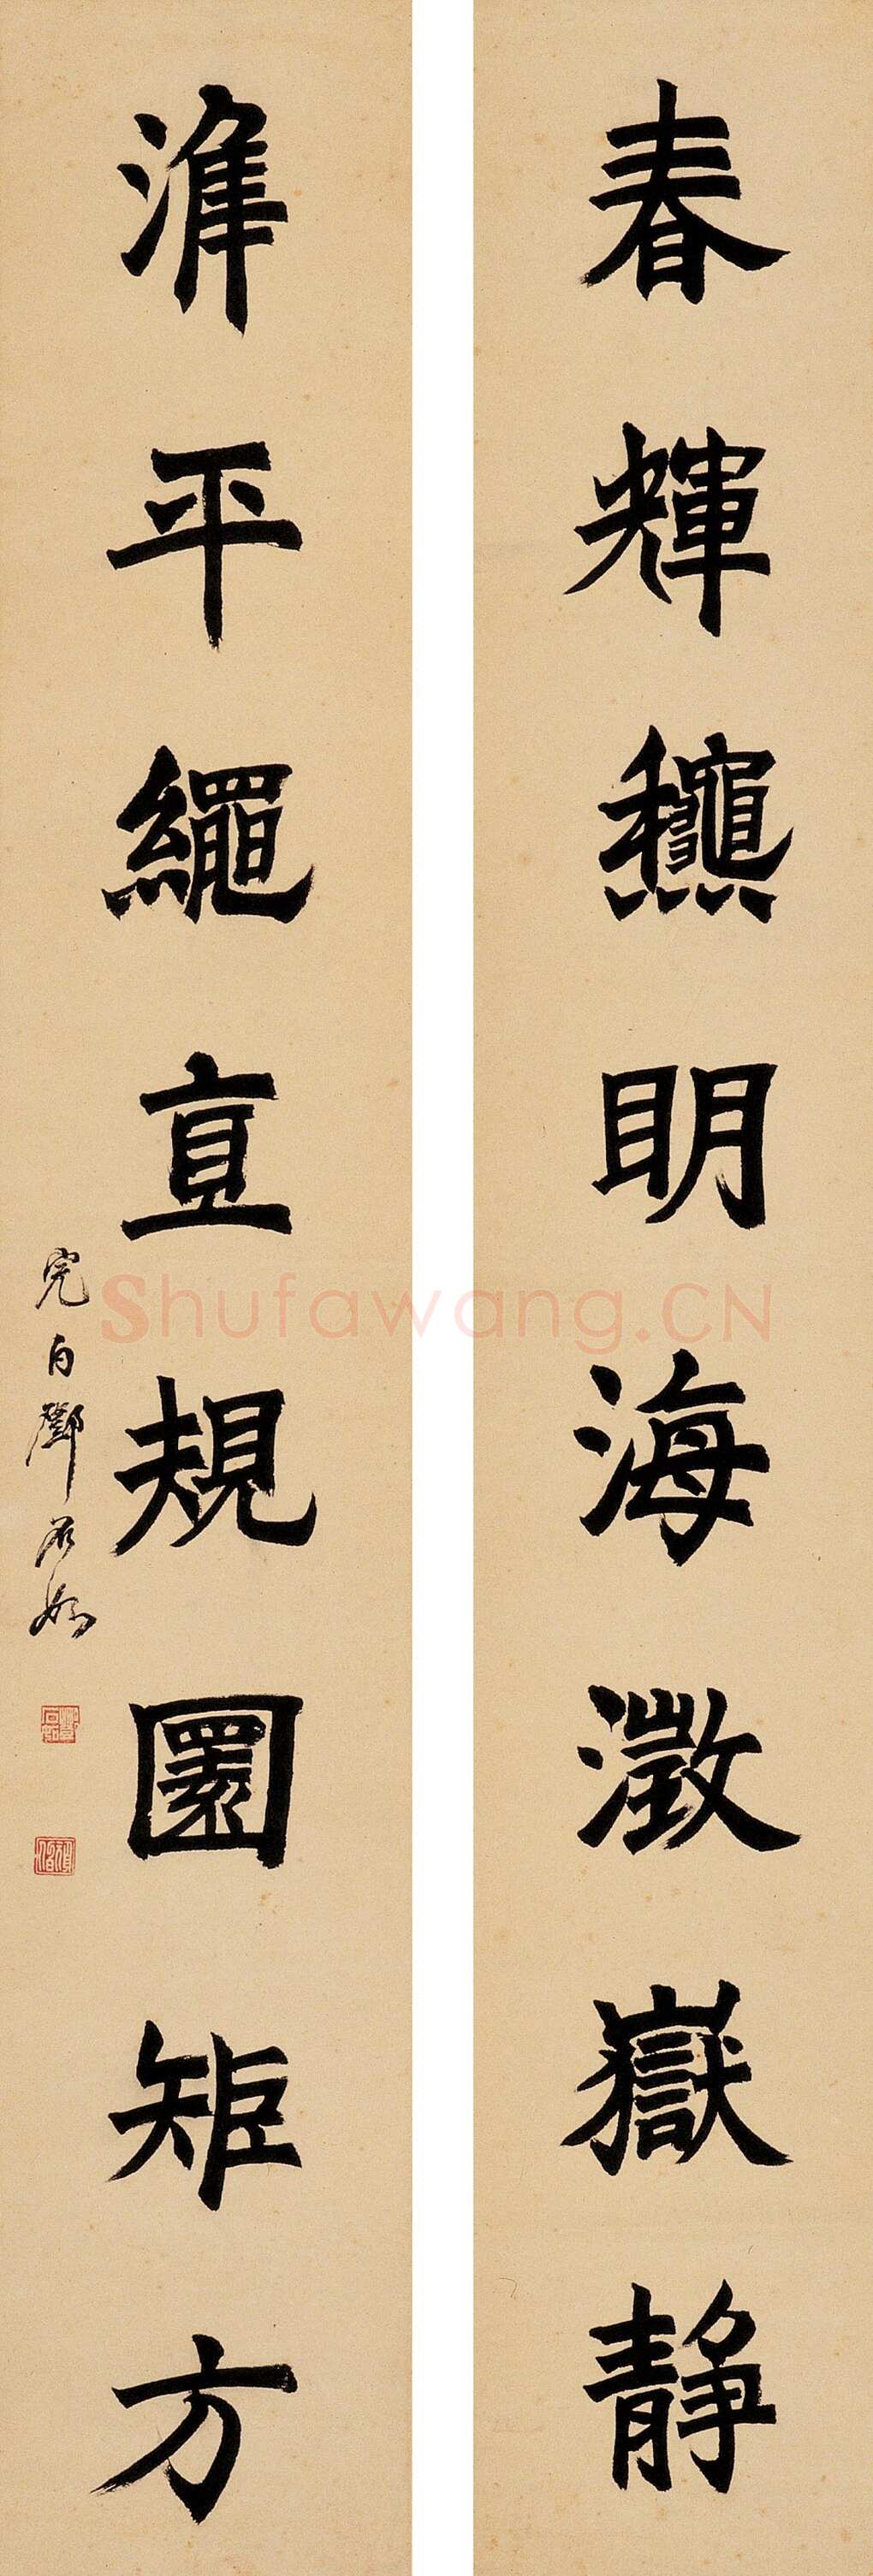 春輝龝明海澂嶽靜
準平繩直規圜矩方
完白鄧石如
鄧石如
頑伯
Shufawang.CN